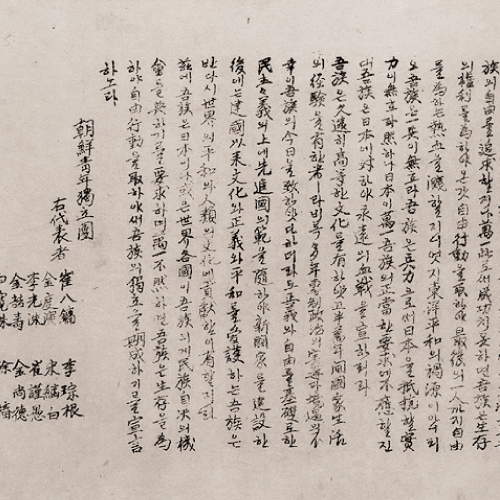 族의 自由를 追求할지나 萬一 此로써 成功치 못하면 吾族은 生存
의 權利를 爲하야 온갖 自由行動을 取하야 最後의 一人까지 自由
를 爲하는 熱血을 濺할지니 엇지 東洋平和의 禍源이 아니리
오 吾族은 一兵이 無호라 吾族은 兵力으로써 日本을 抵抗할 實
力이 無호라 然하나 日本이 萬一 吾族의 正當한 要求에 不應할진
대 吾族은 日本에 對하야 永遠의 血戰을 宣하리라
吾族은 久遠히 高等한 文化를 有하얏고 半萬年間 國家生活
의 經驗을 有한 者라 비록 多年 專制政治의 害毒과 境遇의 不
幸이 吾族의 今日을 致하얏다 하더라도 正義와 自由를 基礎로 한
民主主義의 上에 先進國의 範을 隨하야 新國家를 建設한
後에는 建國以來 文化와 正義와 平和를 愛護하는 吾族은
반다시 世界의 平和와 人類의 文化에 貢獻함이 有할지라
玆에 吾族은 日本이나 或은 世界各國이 吾族의게 民族自決의 機
會를 與하기를 要求하며 萬一 不然하면 吾族은 生存을 爲
하야 自由行動을 取하야써 吾族의 獨立을 期成하기를 宣言
하노라
朝鮮靑年獨立團
右代表者
崔八鏞 李琮根
金度演 宋繼白
李光洙 崔謹愚
金喆壽 金尙德
白寬洙 徐椿